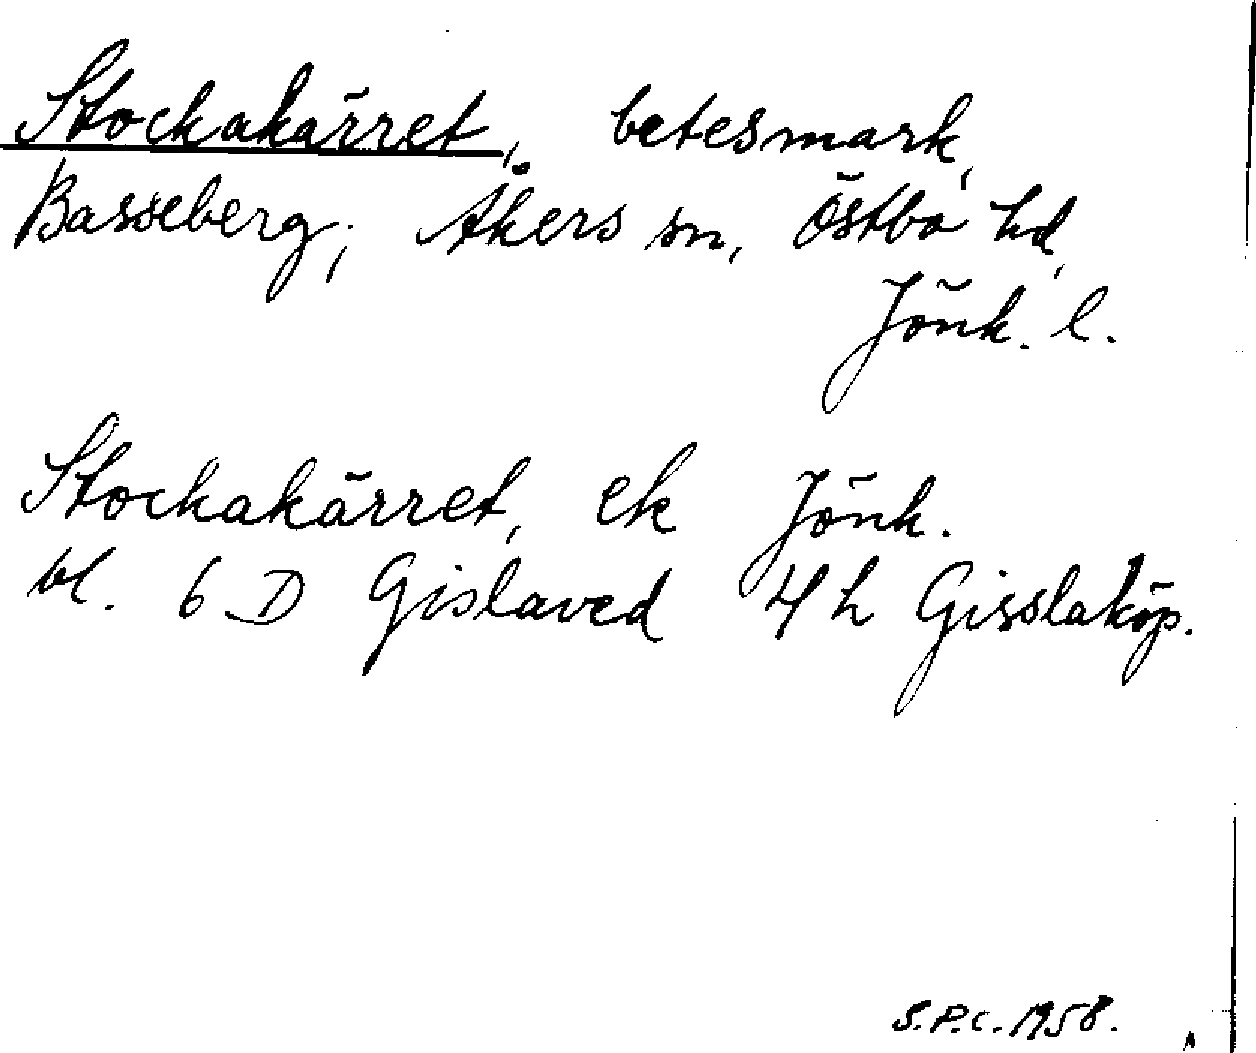 Stockakärret, betesmark,
Basseberg, Åkers sn, Östbo hd,
Jönk. l.
Stockakärret, ek Jönk.
bl. 6 D Gislaved 4 h Gisslaköp.
S.P.C. 1958.